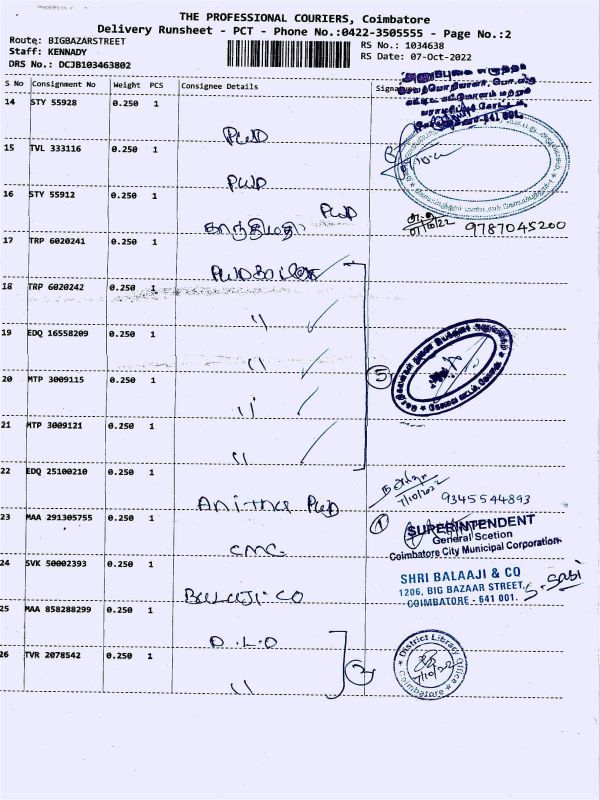 THE PROFESSIONAL COURIERS, Coimbatore
Delivery Runsheet - PCT - Phone No.:0422-3505555 - Page No.:2
Route: BIGBAZARSTREET
Staff: KENNADY
DRS No.: DCJB103463802
RS No.: 1034638
RS Date: 07-Oct-2022
S No Consignment No Weight PCS Consignee Details Signature
14 STY 55928 0.250 1
PWD
15 TVL 333116 0.250 1
PWD
16 STY 55912 0.250 1
PWD
9787045200
17 TRP 6020241 0.250 1
PWD
18 TRP 6020242 0.250 1
"
19 EDQ 16558209 0.250 1
"
20 MTP 3009115 0.250 1
"
5
21 MTP 3009121 0.250 1
"
22 EDQ 25100210 0.250 1
Anitha PWD
7/10/2022
9345544893
23 MAA 291305755 0.250 1
CMC
1
SUPERINTENDENT
General Scetion
Coimbatore City Municipal Corporation
24 SVK 50002393 0.250 1
Balaji. CO
SHRI BALAAJI & CO
1206, BIG BAZAAR STREET,
COIMBATORE - 641 001.
S. Sasi
25 MAA 858288299 0.250 1
D.L.O
26 TVR 2078542 0.250 1
"
2
District Library Office
7/10/22
Coimbatore